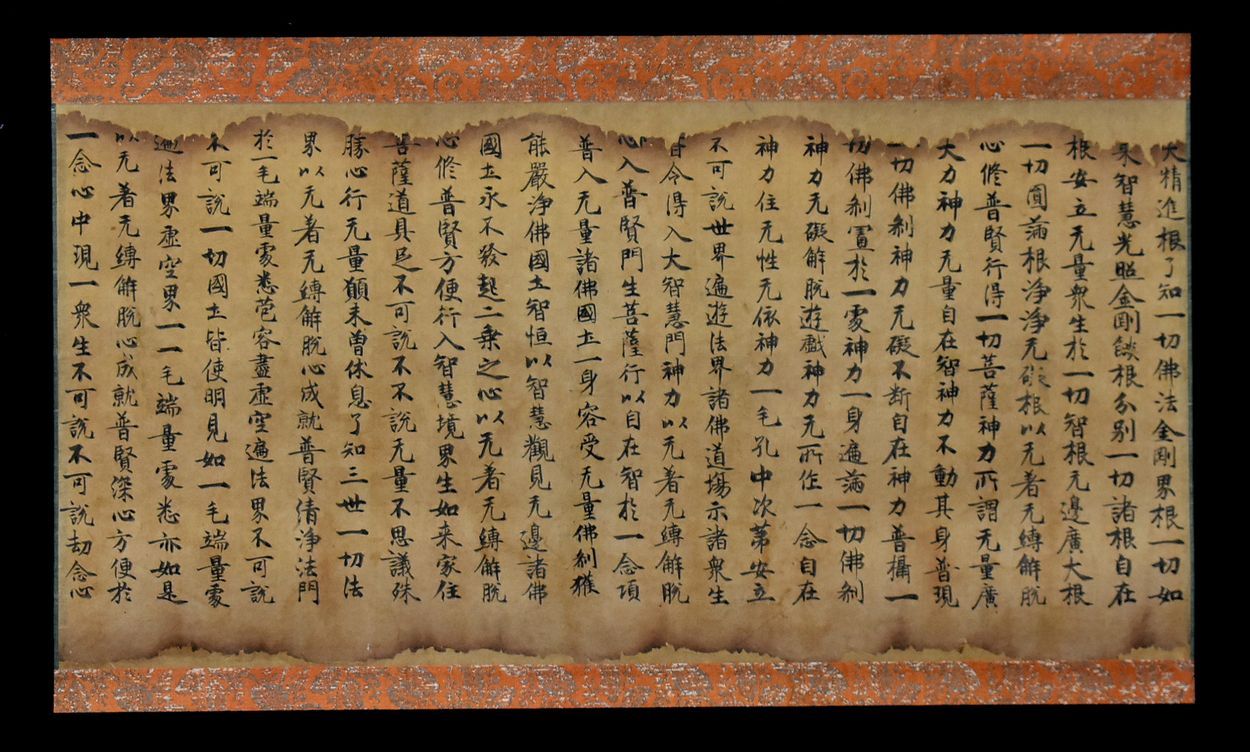 大精進根了知一切佛法金剛界根一切如
来智慧光照金剛𦦨根分别一切諸根自在
根安立无量衆生於一切智根无邊廣大根
一切圓滿根淨淨无礙根以无著无縛解脱
心修普賢行得一切菩薩神力所謂无量廣
大力神力无量自在智神力不動其身普現
一切佛刹神力无礙不断自在神力普攝一
切佛刹置於一處神力一身遍滿一切佛刹
神力无礙解脱遊戱神力无所作一念自在
神力住无性无依神力一毛孔中次第安立
不可説世界遍遊法界諸佛道場示諸衆生
皆令得入大智慧門神力以无著无縛解脱
心入普賢門生菩薩行以自在智於一念項
普入无量諸佛國土一身容受无量佛刹獲
能嚴淨佛國土智恒以智慧觀見无邊諸佛
國土永不發起二乗之心以无著无縛解脱
心修普賢方便行入智慧境界生如来家住
菩薩道具足不可説不不説无量不思議殊
勝心行无量願未曽休息了知三世一切法
界以无著无縛解脱心成就普賢清淨法門
於一毛端量處悉苞容盡虚空遍法界不可説
不可説一切國土皆使明見如一毛端量處
遍法界虚空界一一毛端量處悉亦如是
以无著无縛解脱心成就普賢深心方便於
一念心中現一衆生不可説不可説劫念心